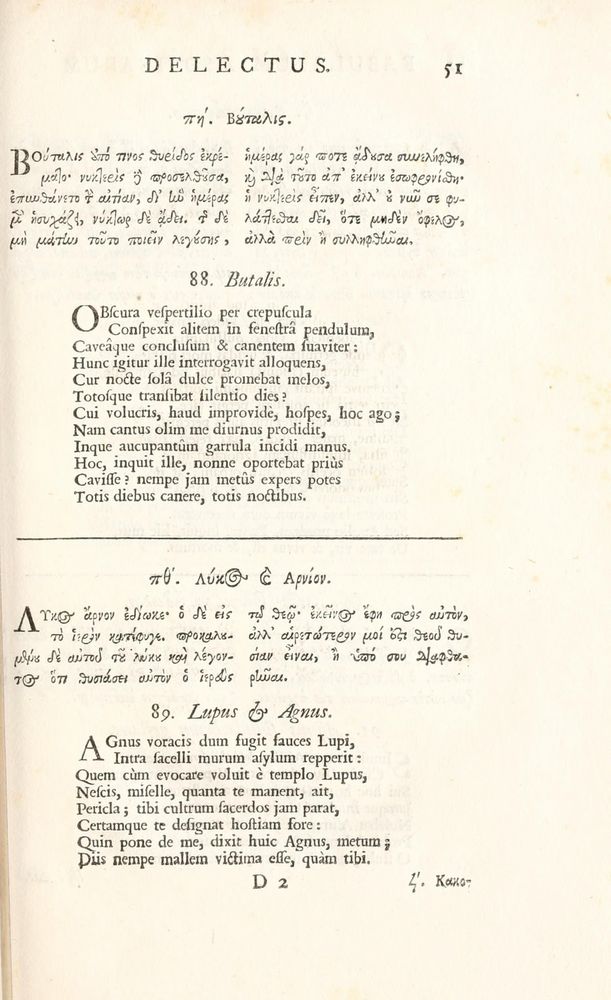 DELECTUS. 51
πή. Βούταλις.
Βούταλις ὑπό τινος θυρίδος ἐκρέ-
ματο· νυκτερὶς δὲ προσελθοῦσα,
ἐπυνθάνετο τὴν αἰτίαν, δι' ἣν ἡμέρας
μὲν ἡσυχάζει, νύκτωρ δὲ ᾄδει. τῆς δὲ
μὴ μάτην τοῦτο ποιεῖν λεγούσης,
ἡμέρας γάρ ποτε ᾄδουσα συνελήφθη,
καὶ διὰ τοῦτο ἀπ' ἐκείνου ἐσωφρονίσθη·
ἡ νυκτερὶς εἶπεν, ἀλλ' οὐ νῦν σε φυ-
λάττεσθαι δεῖ, ὅτε μηδὲν ὄφελος,
ἀλλὰ πρὶν ἢ συλληφθῆναι.
88. Butalis.
OBſcura veſpertilio per crepuſcula
Conſpexit alitem in feneſtrâ pendulum,
Caveâque concluſum & canentem ſuaviter:
Hunc igitur ille interrogavit alloquens,
Cur nocte ſolâ dulce promebat melos,
Totoſque tranſibat ſilentio dies?
Cui volucris, haud improvidè, hoſpes, hoc ago;
Nam cantus olim me diurnus prodidit,
Inque aucupantûm garrula incidi manus.
Hoc, inquit ille, nonne oportebat priùs
Caviſſe? nempe jam metûs expers potes
Totis diebus canere, totis noctibus.
πθ'. Λύκος καὶ Ἀρνίον.
Λύκος ἄρνον ἐδίωκε· ὁ δὲ εἰς
τὸ ἱερὸν κατέφυγε. προκαλου-
μένου δὲ αὐτοῦ τοῦ λύκου καὶ λέγον-
τος ὅτι θυσιάσει αὐτὸν ὁ ἱερεὺς
τῷ θεῷ· ἐκεῖνος ἔφη πρὸς αὐτὸν,
ἀλλ' αἱρετώτερόν μοί ἐστι θεοῦ θυ-
σίαν εἶναι, ἢ ὑπό σου διαφθα-
ρῆναι.
89. Lupus & Agnus.
AGnus voracis dum fugit fauces Lupi,
Intra ſacelli murum aſylum repperit:
Quem cùm evocare voluit è templo Lupus,
Neſcis, miſelle, quanta te manent, ait,
Pericla; tibi cultrum ſacerdos jam parat,
Certamque te deſignat hoſtiam fore:
Quin pone de me, dixit huic Agnus, metum;
Diis nempe mallem victima eſſe, quàm tibi.
D 2 ϟ'. Κακο-